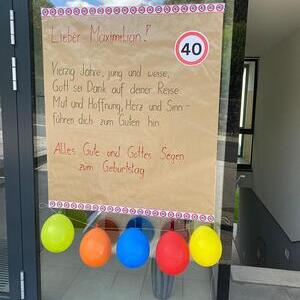 Lieber Maximilian!
40
Vierzig Jahre, jung und weise,
Gott sei Dank auf deiner Reise.
Mut und Hoffnung, Herz und Sinn -
führen dich zum Guten hin.
Alles Gute und Gottes Segen
zum Geburtstag